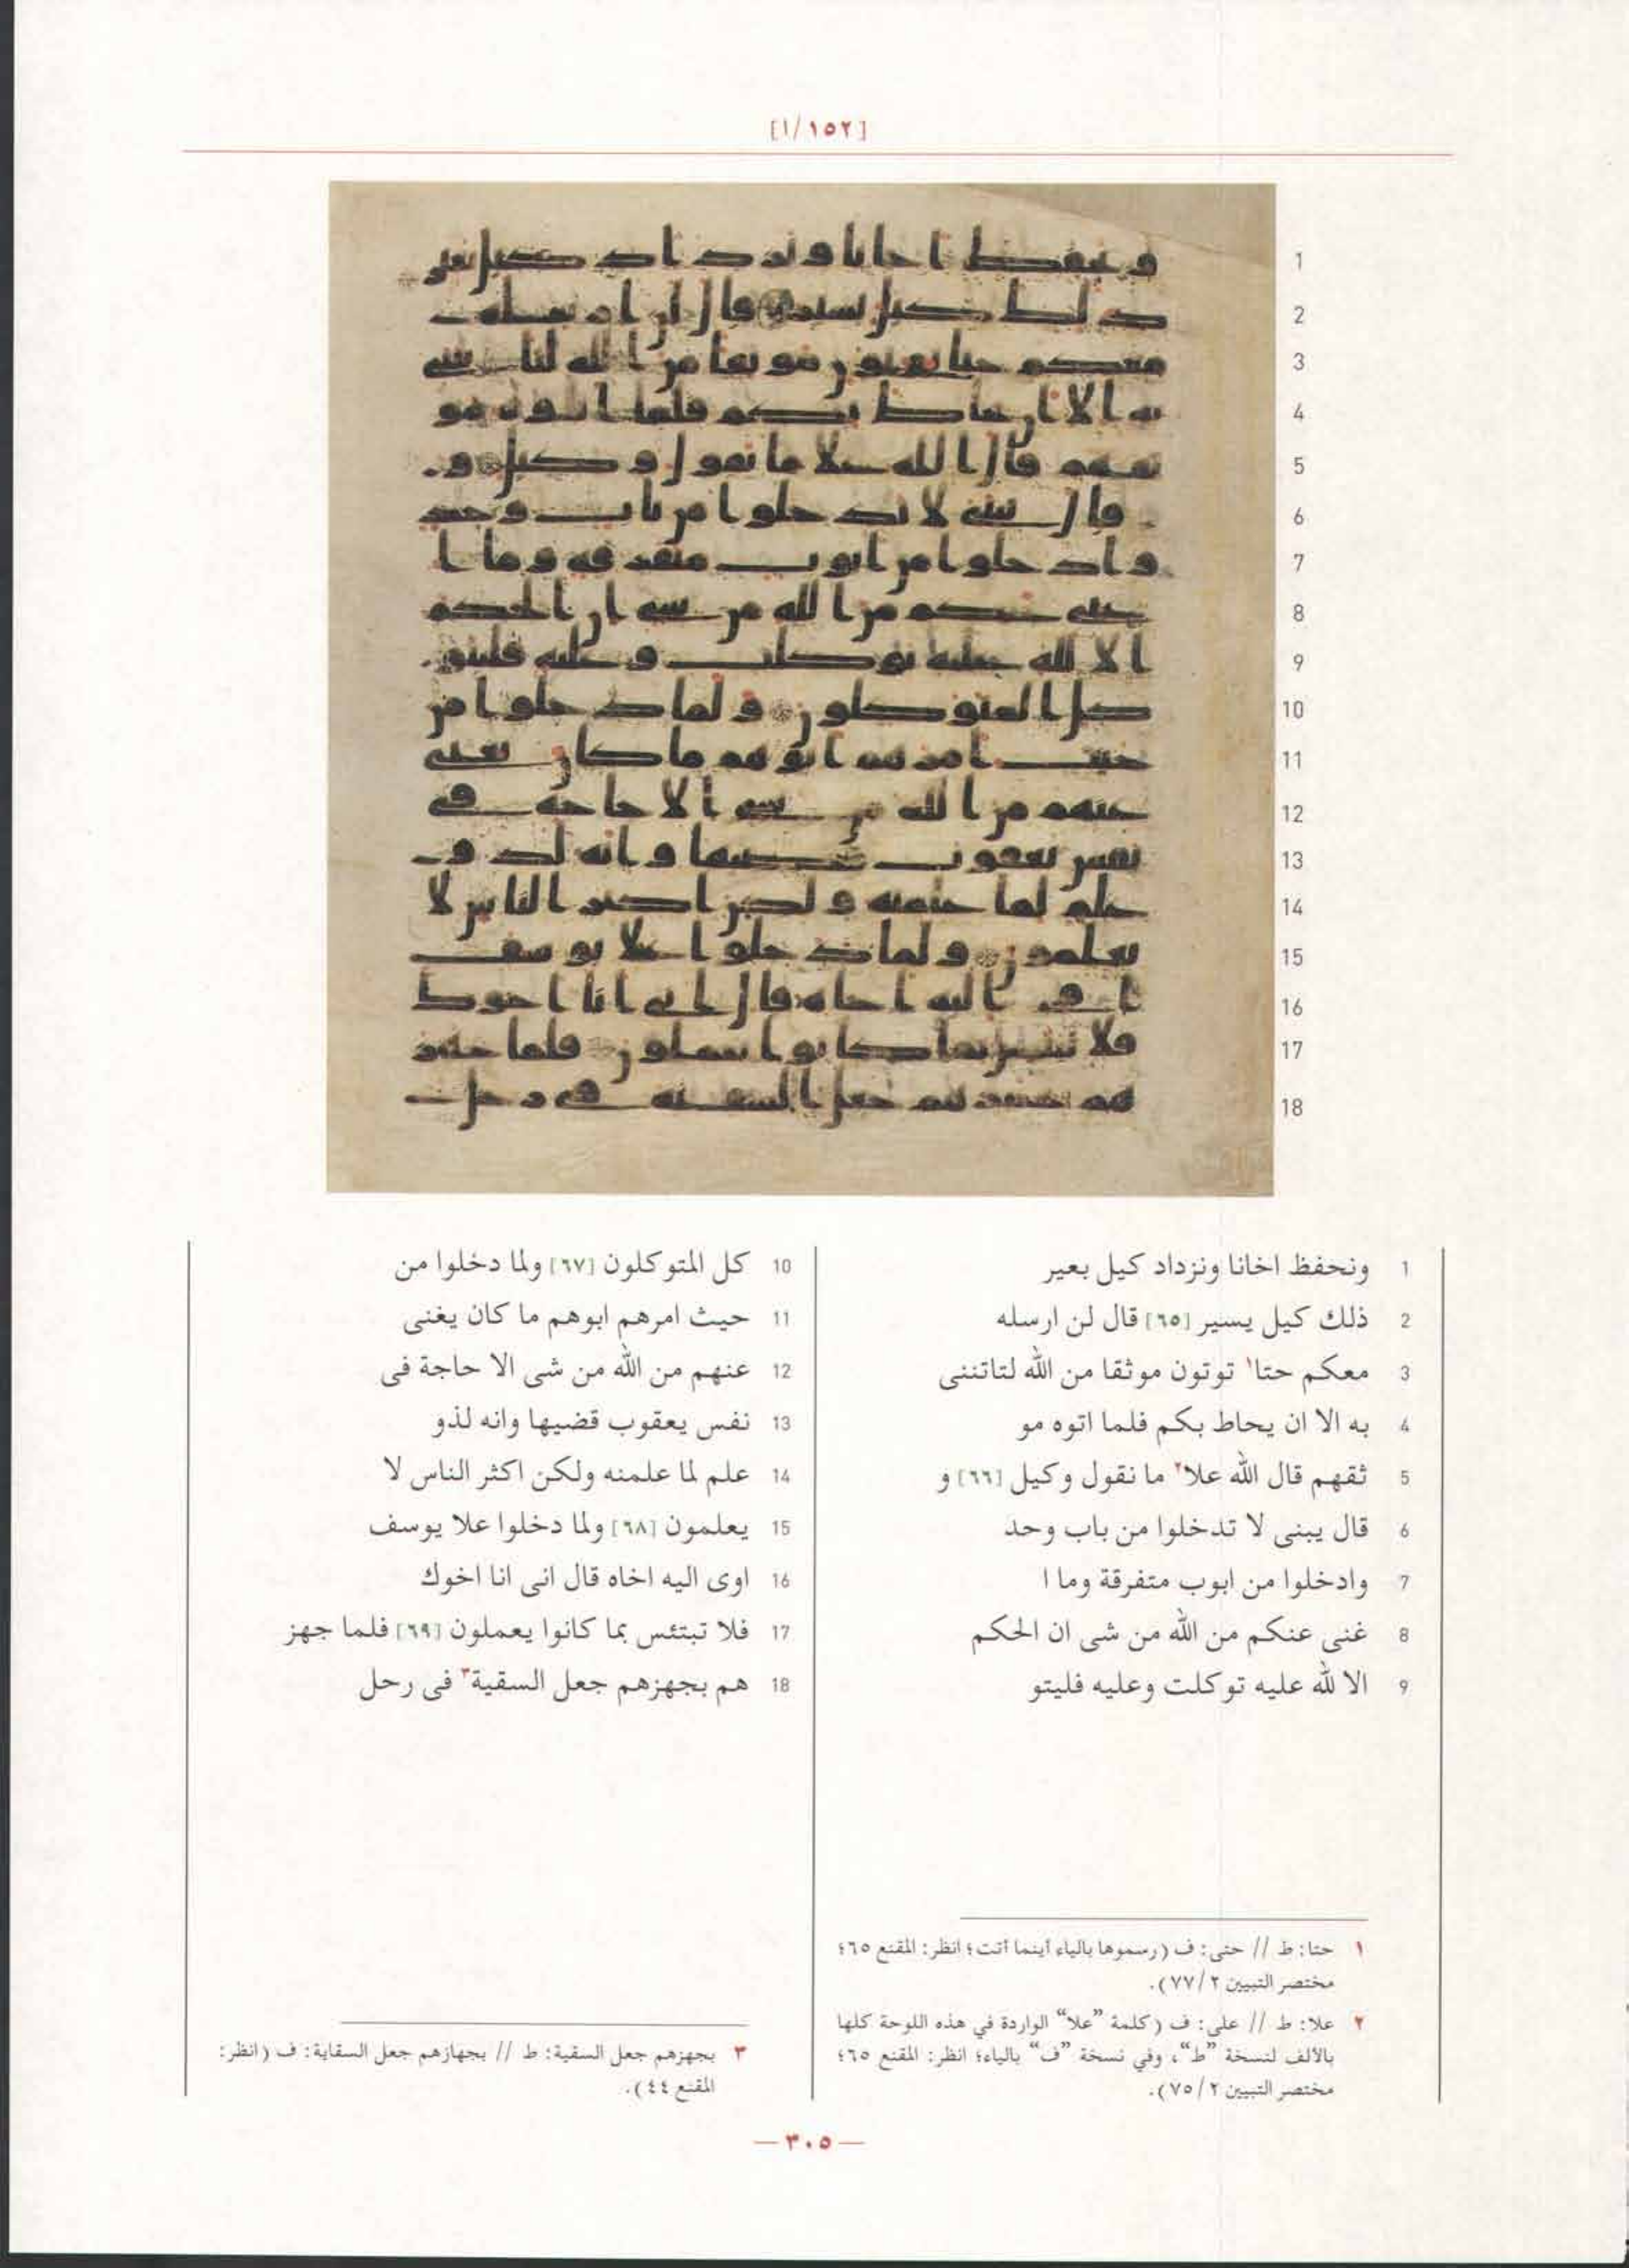 [١/١٥٢]
1 ونحفظ اخانا ونزداد كيل بعير
2 ذلك كيل يسير [٦٥] قال لن ارسله
3 معكم حتا١ توتون موثقا من الله لتاتننى
4 به الا ان يحاط بكم فلما اتوه مو
5 ثقهم قال الله علا٢ ما نقول وكيل [٦٦] و
6 قال يبنى لا تدخلوا من باب وحد
7 وادخلوا من ابوب متفرقة وما ا
8 غنى عنكم من الله من شى ان الحكم
9 الا لله عليه توكلت وعليه فليتو
10 كل المتوكلون [٦٧] ولما دخلوا من
11 حيث امرهم ابوهم ما كان يغنى
12 عنهم من الله من شى الا حاجة فى
13 نفس يعقوب قضيها وانه لذو
14 علم لما علمنه ولكن اكثر الناس لا
15 يعلمون [٦٨] ولما دخلوا علا يوسف
16 اوى اليه اخاه قال انى انا اخوك
17 فلا تبتئس بما كانوا يعملون [٦٩] فلما جهز
18 هم بجهزهم جعل السقية٣ فى رحل
١ حتا: ط // حتى: ف (رسموها بالياء أينما أتت؛ انظر: المقنع ٦٥؛
مختصر التبيين ٢/٧٧).
٢ علا: ط // على: ف (كلمة ”علا“ الواردة في هذه اللوحة كلها
بالألف لنسخة ”ط“، وفي نسخة ”ف“ بالياء؛ انظر: المقنع ٦٥؛
مختصر التبيين ٢/٧٥).
٣ بجهزهم جعل السقية: ط // بجهازهم جعل السقاية: ف (انظر:
المقنع ٤٤).
— ٣٠٥ —